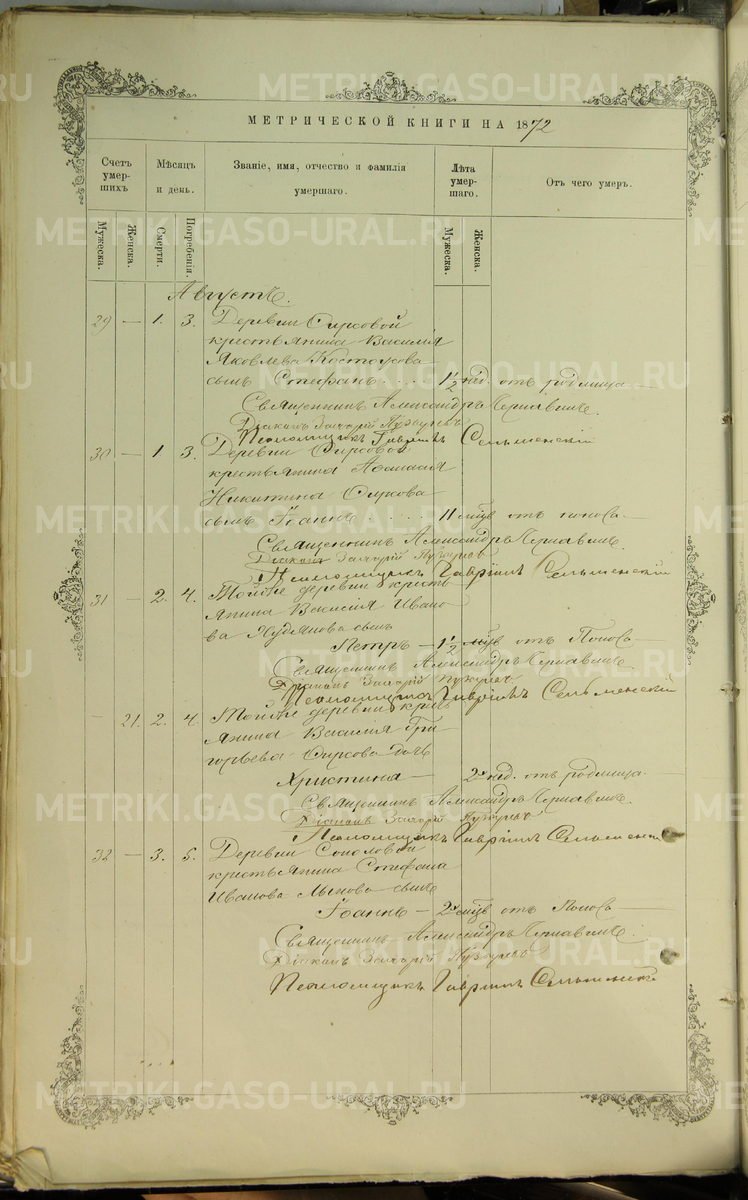 МЕТРИЧЕСКОЙ КНИГИ НА 1872
Счетъ умерших
Мѣсяцъ и день.
Званіе, имя, отчество и фамилія умершаго.
Лѣта умершаго.
Отъ чего умеръ.
Мужеска.
Женска.
Смерти.
Погребенія.
Мужеска.
Женска.
Августъ.
29 — 1. 3. Деревни Фирсовой
крестьянина Василія
Яковлева
сынъ Стефанъ . . . . 1½ нед. отъ родимца —
Священникъ Александръ
Діаконъ Захарій
Псаломщикъ Гавріилъ Сельменскій
30 — 1 3. Деревни Фирсовой
крестьянина
Никитина
сынъ Іоаннъ . . . 11 мцв отъ поноса —
Священникъ Александръ
Діаконъ Захарій
Псаломщикъ Гавріилъ Сельменскій
31 — 2. 4. Той же деревни кресть
янина Василія Ивано
ва Худякова сынъ
Петръ — 1½ мцв отъ Поноса —
Священникъ Александръ
Діаконъ Захарій
Псаломщикъ Гавріилъ Сельменскій
— 21. 2. 4. Той же деревни крест
янина Василія Гри
горьева Фирсова дочь
Христина — 2 нед. отъ родимца —
Священникъ Александръ
Діаконъ Захарій
Псаломщикъ Гавріилъ Сельменскій
32 — 3. 5. Деревни Соколовой
крестьянина Стефана
Иванова сынъ
Іоаннъ — 2 мцв отъ Поноса —
Священникъ Александръ
Діаконъ Захарій
Псаломщикъ Гавріилъ Сельменскій
METRIKI.GASO-URAL.RU